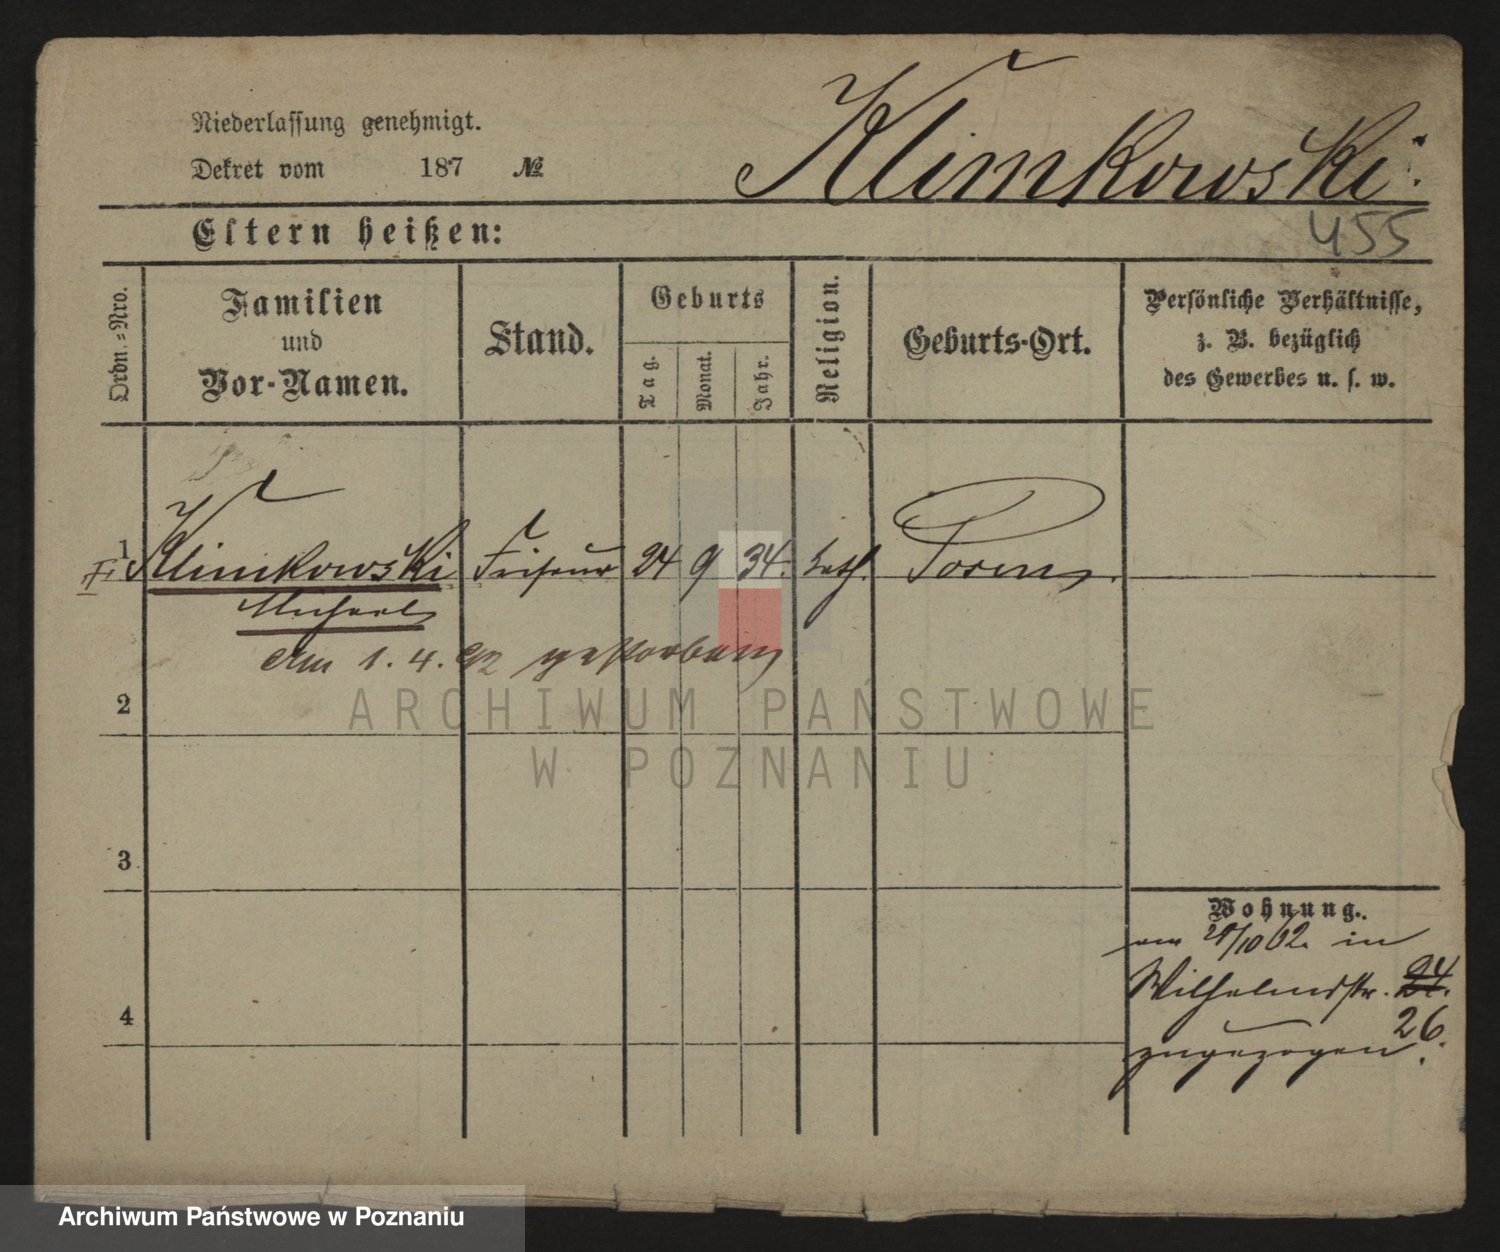 Niederlassung genehmigt.
Dekret vom 187 №
Klimkowski.
455
Eltern heißen:
Ordn.=Nro.
Familien
und
Vor-Namen.
Stand.
Geburts
Tag.
Monat.
Jahr.
Religion.
Geburts-Ort.
Persönliche Verhältnisse,
z. B. bezüglich
des Gewerbes u. s. w.
1 Klimkowski Friseur 24 9 34. kath. Posen.
Michael
Am 1. 4. 92 gestorben
2
ARCHIWUM PAŃSTWOWE
W POZNANIU
3
Wohnung.
am /10 62. in
Wilhelmstr. 24.
26.
zugezogen.
4
Archiwum Państwowe w Poznaniu